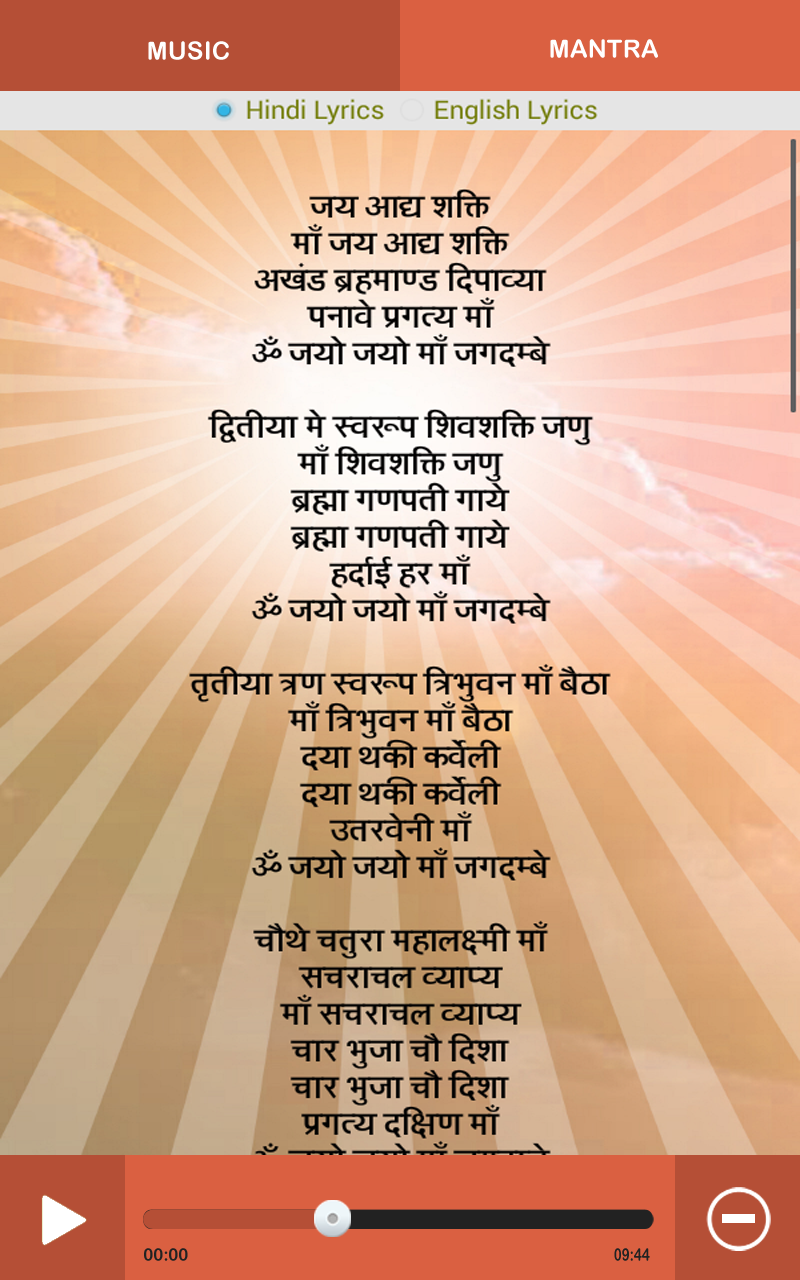 MUSIC
MANTRA
Hindi Lyrics
English Lyrics
जय आद्य शक्ति
माँ जय आद्य शक्ति
अखंड ब्रहमाण्ड दिपाव्या
पनावे प्रगत्य माँ
ॐ जयो जयो माँ जगदम्बे
द्वितीया मे स्वरूप शिवशक्ति जणु
माँ शिवशक्ति जणु
ब्रह्मा गणपती गाये
ब्रह्मा गणपती गाये
हर्दाई हर माँ
ॐ जयो जयो माँ जगदम्बे
तृतीया त्रण स्वरूप त्रिभुवन माँ बैठा
माँ त्रिभुवन माँ बैठा
दया थकी कर्वेली
दया थकी कर्वेली
उतरवेनी माँ
ॐ जयो जयो माँ जगदम्बे
चौथे चतुरा महालक्ष्मी माँ
सचराचल व्याप्य
माँ सचराचल व्याप्य
चार भुजा चौ दिशा
चार भुजा चौ दिशा
प्रगत्य दक्षिण माँ
00:00
09:44